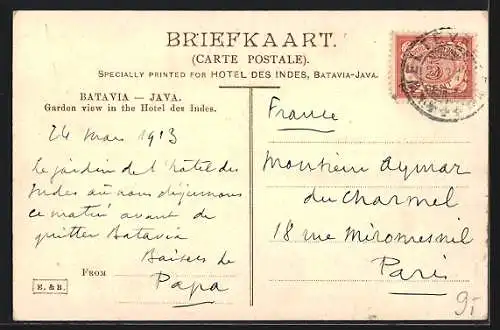 BRIEFKAART.
(CARTE POSTALE).
SPECIALLY PRINTED FOR HOTEL DES INDES, BATAVIA-JAVA.
BATAVIA — JAVA.
Garden view in the Hotel des Indes.
24 Mars 1913
Le jardin de l'hotel des
Indes où nous déjeunons
ce matin avant de
quitter Batavia
Baisers de
FROM Papa
E. & B.
France
Monsieur Aymar
du Charmel
18 rue Miromesnil
Paris
5
9,-